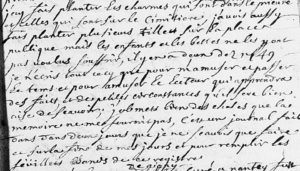 fais planter les charmes qui sont dans le preieure
et elles qui sont sur le Cimitiere, j'avois aussy
fais planter plusieurs tillets sur la place
publique mais les enfants et les bestes ne les y ont
pas voulus souffrir, il y en a un des 1749
je n'ecris tout cecy que pour m'amuser et passer
le tems et pour amuser le lecteur qui apprendra
des faits et des petites circonstances qu'il sera bien
aise de scavoir, j'obmets bien des choses que la
memoire ne me fournit pas, c'est un journal fait
dans deux jours que je ne scaurois que faire
sur la fin de mes jours et pour remplir les
feüillets blancs de ce registre
a nantey